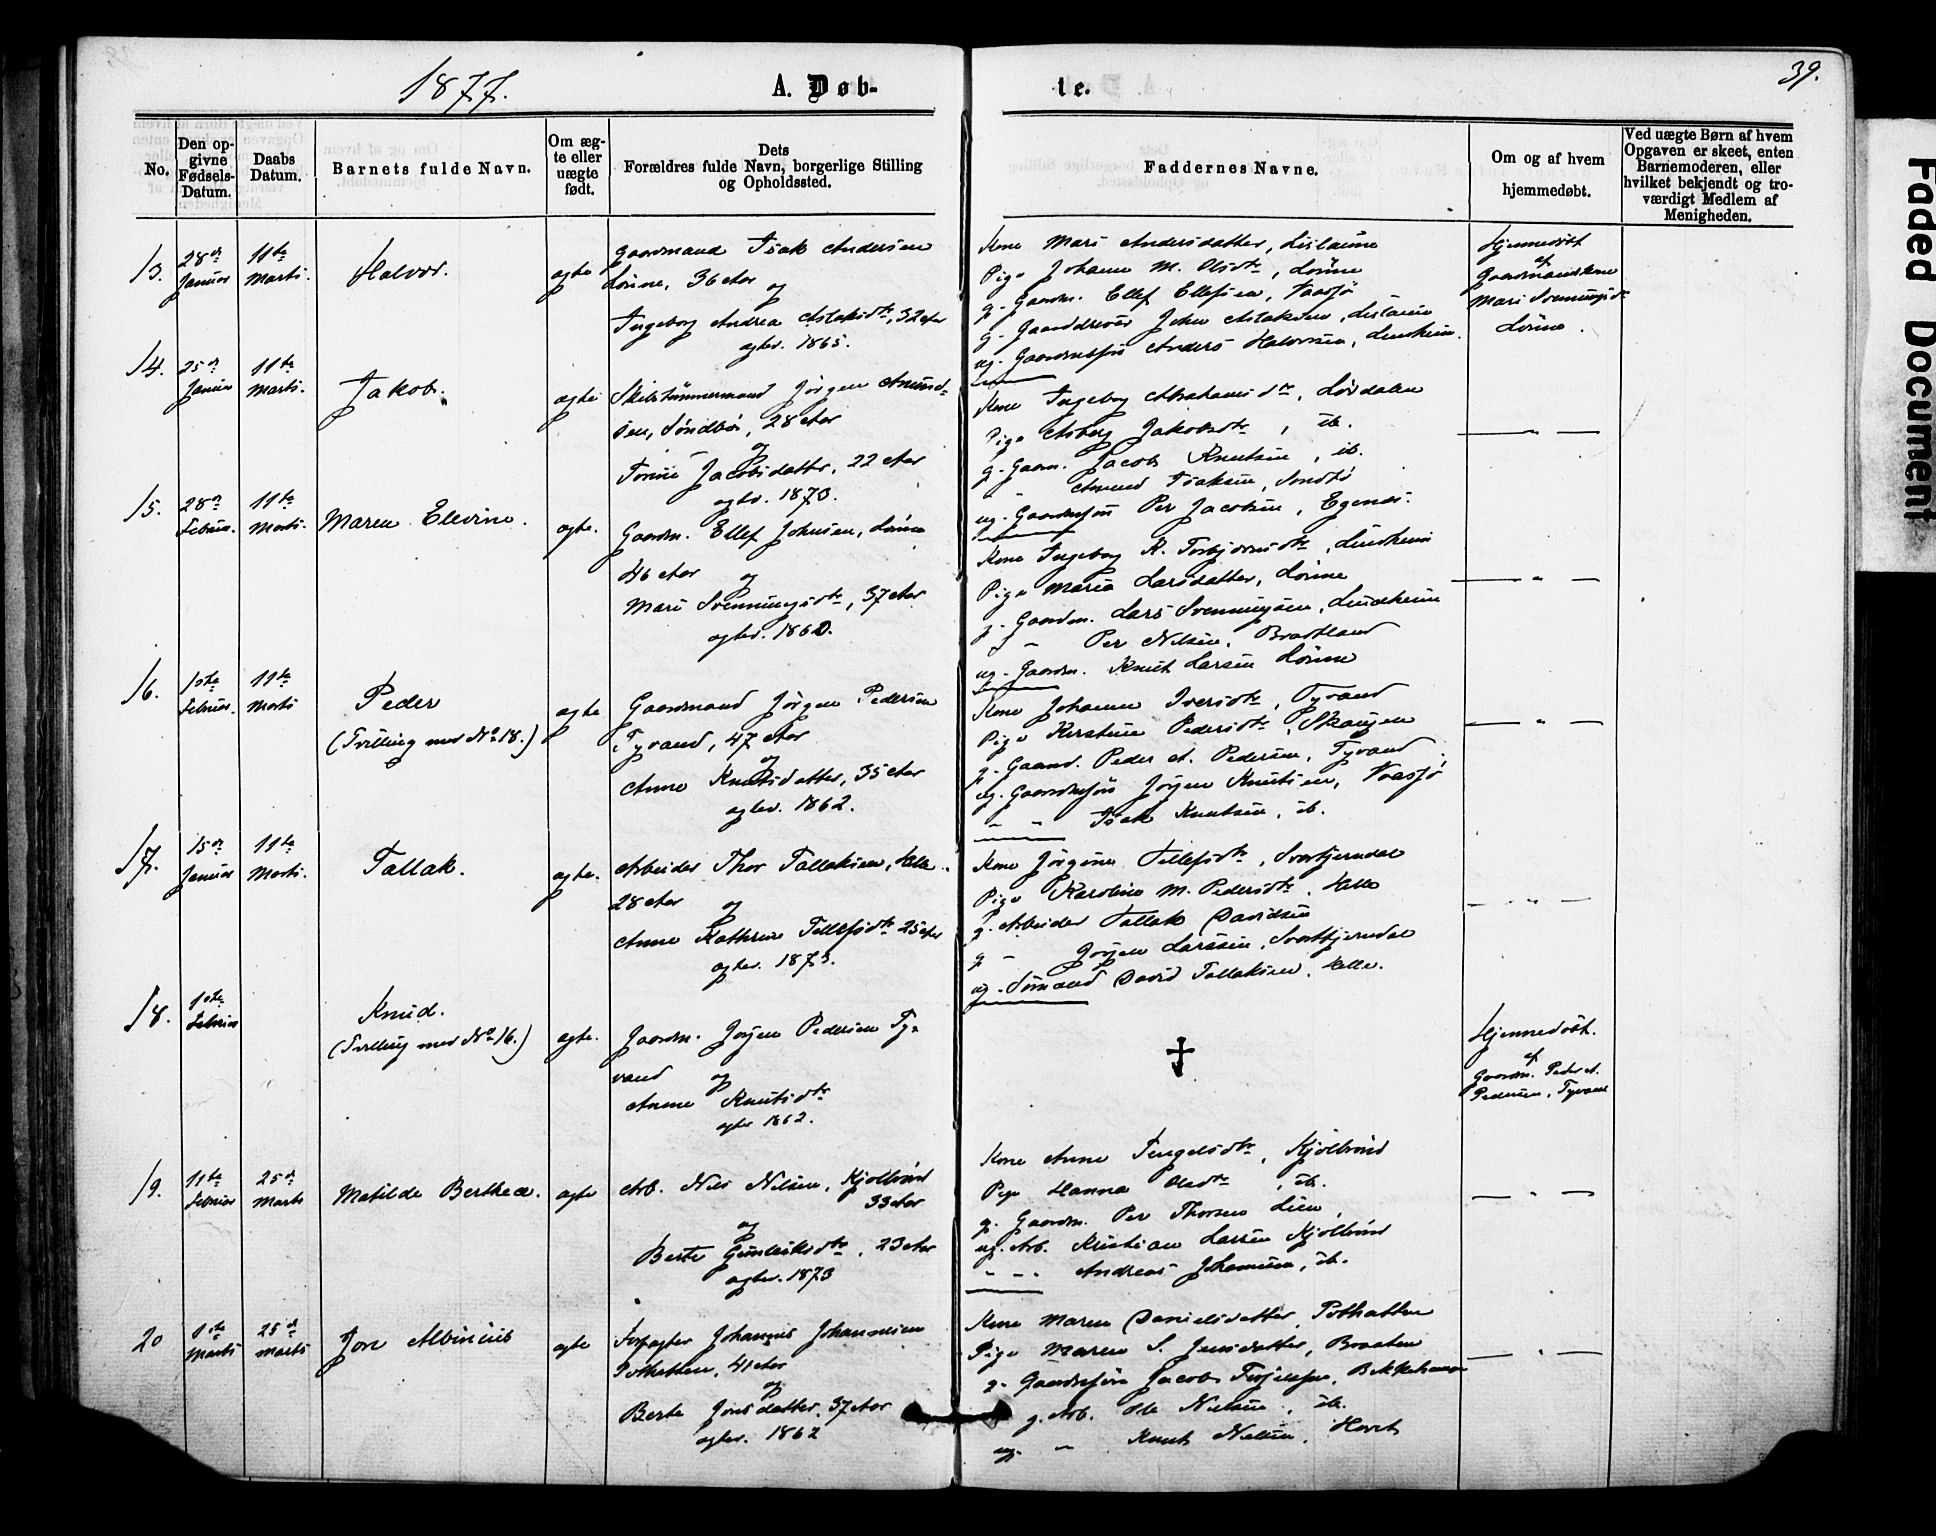 1877.
A. Døb-
te.
39.
No.
Den op-
givne
Fødsels-
Datum.
Daabs
Datum.
Barnets fulde Navn.
Om æg-
te eller
uægte
født.
Dets
Forældres fulde Navn, borgerlige Stilling
og Opholdssted.
Faddernes Navne.
Om og af hvem
hjemmedøbt.
Ved uægte Børn af hvem
Opgaven er skeet, enten
Barnemoderen, eller
hvilket bekjendt og tro-
værdigt Medlem af
Menigheden.
13.
28de Januar
11te Marts.
Halvor.
ægte
Gaardmand Isak Andersen
Lønne, 36 Aar
og
Ingeborg Andrea Aslaksdtr, 32 Aar
ægtev. 1865.
Kone Mari Andersdatter,
Pige Johanne M. Olsdtr, Lønne
g. Gaardm. Ellef Ellefsen, Vaasjø
g. John Aslaksen,
ug. Gaardmsøn Anders Halvorsen, Lindheim.
Hjemmedøbt
af
Gaardmandskone
Mari Svenningsdr
Lønne.
14.
25de Januar
11te Marts.
Jakob.
ægte
Skibstømmermand Jørgen Amund-
sen, Sóndbø, 28 Aar
og
Tomine Jacobsdatter, 22 Aar
ægtev. 1873.
Kone Ingeborg Abrahamsdtr, Lövdalen
Pige Asborg Jakobsdtr, ib.
g. Gaardm. Jacob Knutsen, ib.
Amund Isaksen,
ug. Gaardmsøn Per Jacobsen, Egenæs.
15.
28de Februar.
11te Marts.
Maren Elevine.
ægte.
Gaardm. Ellef Johnsen, Lønne
46 Aar
og
Mari Svenningsdtr, 37 Aar
ægtev. 1860.
Kone Ingeborg K. Torbjørnsdtr, Lindheim
Pige Maria Larsdatter, Lønne
g. Gaardm. Lars Svenningsen, Lindheim
g. " Per Nilsen, Bratland
ug. Gaardm. Knut Larsen Lønne
16.
1ste Februar.
11te Marts
Peder
(Tvilling med No 18.)
ægte
Gaardmand Jørgen Pedersen
Tyvand, 47 Aar
og
Anne Knutsdatter, 35 Aar
ægtev. 1862.
Kone Johanne Iversdtr, Tyvand
Pige Kirstine Pedersdtr, Skaugen
g. Gaardm. Peder A. Pedersen, Tyvand
ug. Gaardmsøn Jørgen Knutsen, Vaasjø
" " Isak Knutsen, ib.
17.
15de Januar
11te Marts.
Tallak.
ægte.
Arbeider Thor Tallaksen, Helle.
28 Aar
og
Anne Kathrine Tellefsdtr 25 Aar
ægtev. 1873.
Kone Jørgine Tellefsdtr, Svartjerndal
Pige Karoline M. Pedersdtr, Helle
g. Arbeider Tallak Davidsen
g. " Jørgen Larssen, Svartjerndal
ug. Sømand David Tallaksen, Helle.
18.
1ste Februar
Knud.
(Tvilling med No 16.)
ægte.
Gaardm. Jørgen Pedersen Ty-
vand og
Anne Knutsdtr
ægtev 1862.
†
Hjemmedøbt.
af
Gaardm. Peder A.
Pedersen, Tyvand
19.
11te Februar
25de Marts
Matilde Berthea.
ægte
Arb. Nils Nilsen, Kjølbrønd
33 Aar
og
Berte Gunleiksdtr, 23 Aar
ægtev. 1873
Kone Anne Tengelsdtr, Kjølbrønd
Pige Hanna Olsdtr, ib.
g. Gaardm. Per Thorsen Lien,
ug. Arb. Kristian Larsen Kjølbrønd
" " " Andreas Johannsen, ib.
20
1ste Marts
25de Marts
Jon Albinius
ægte
Forpagter Johannes Johannesen
Pothatten, 41 Aar
og
Berte Jonsdatter, 37 Aar
ægtev. 1862
Kone Maren Danielsdatter, Pothatten
Pige Maren S. Jensdatter, Braaten
g. Gaardmsøn Jacob
g. Arb. Ole Nielsen, ib.
ug. " Knut Nielsen,
Faded Document